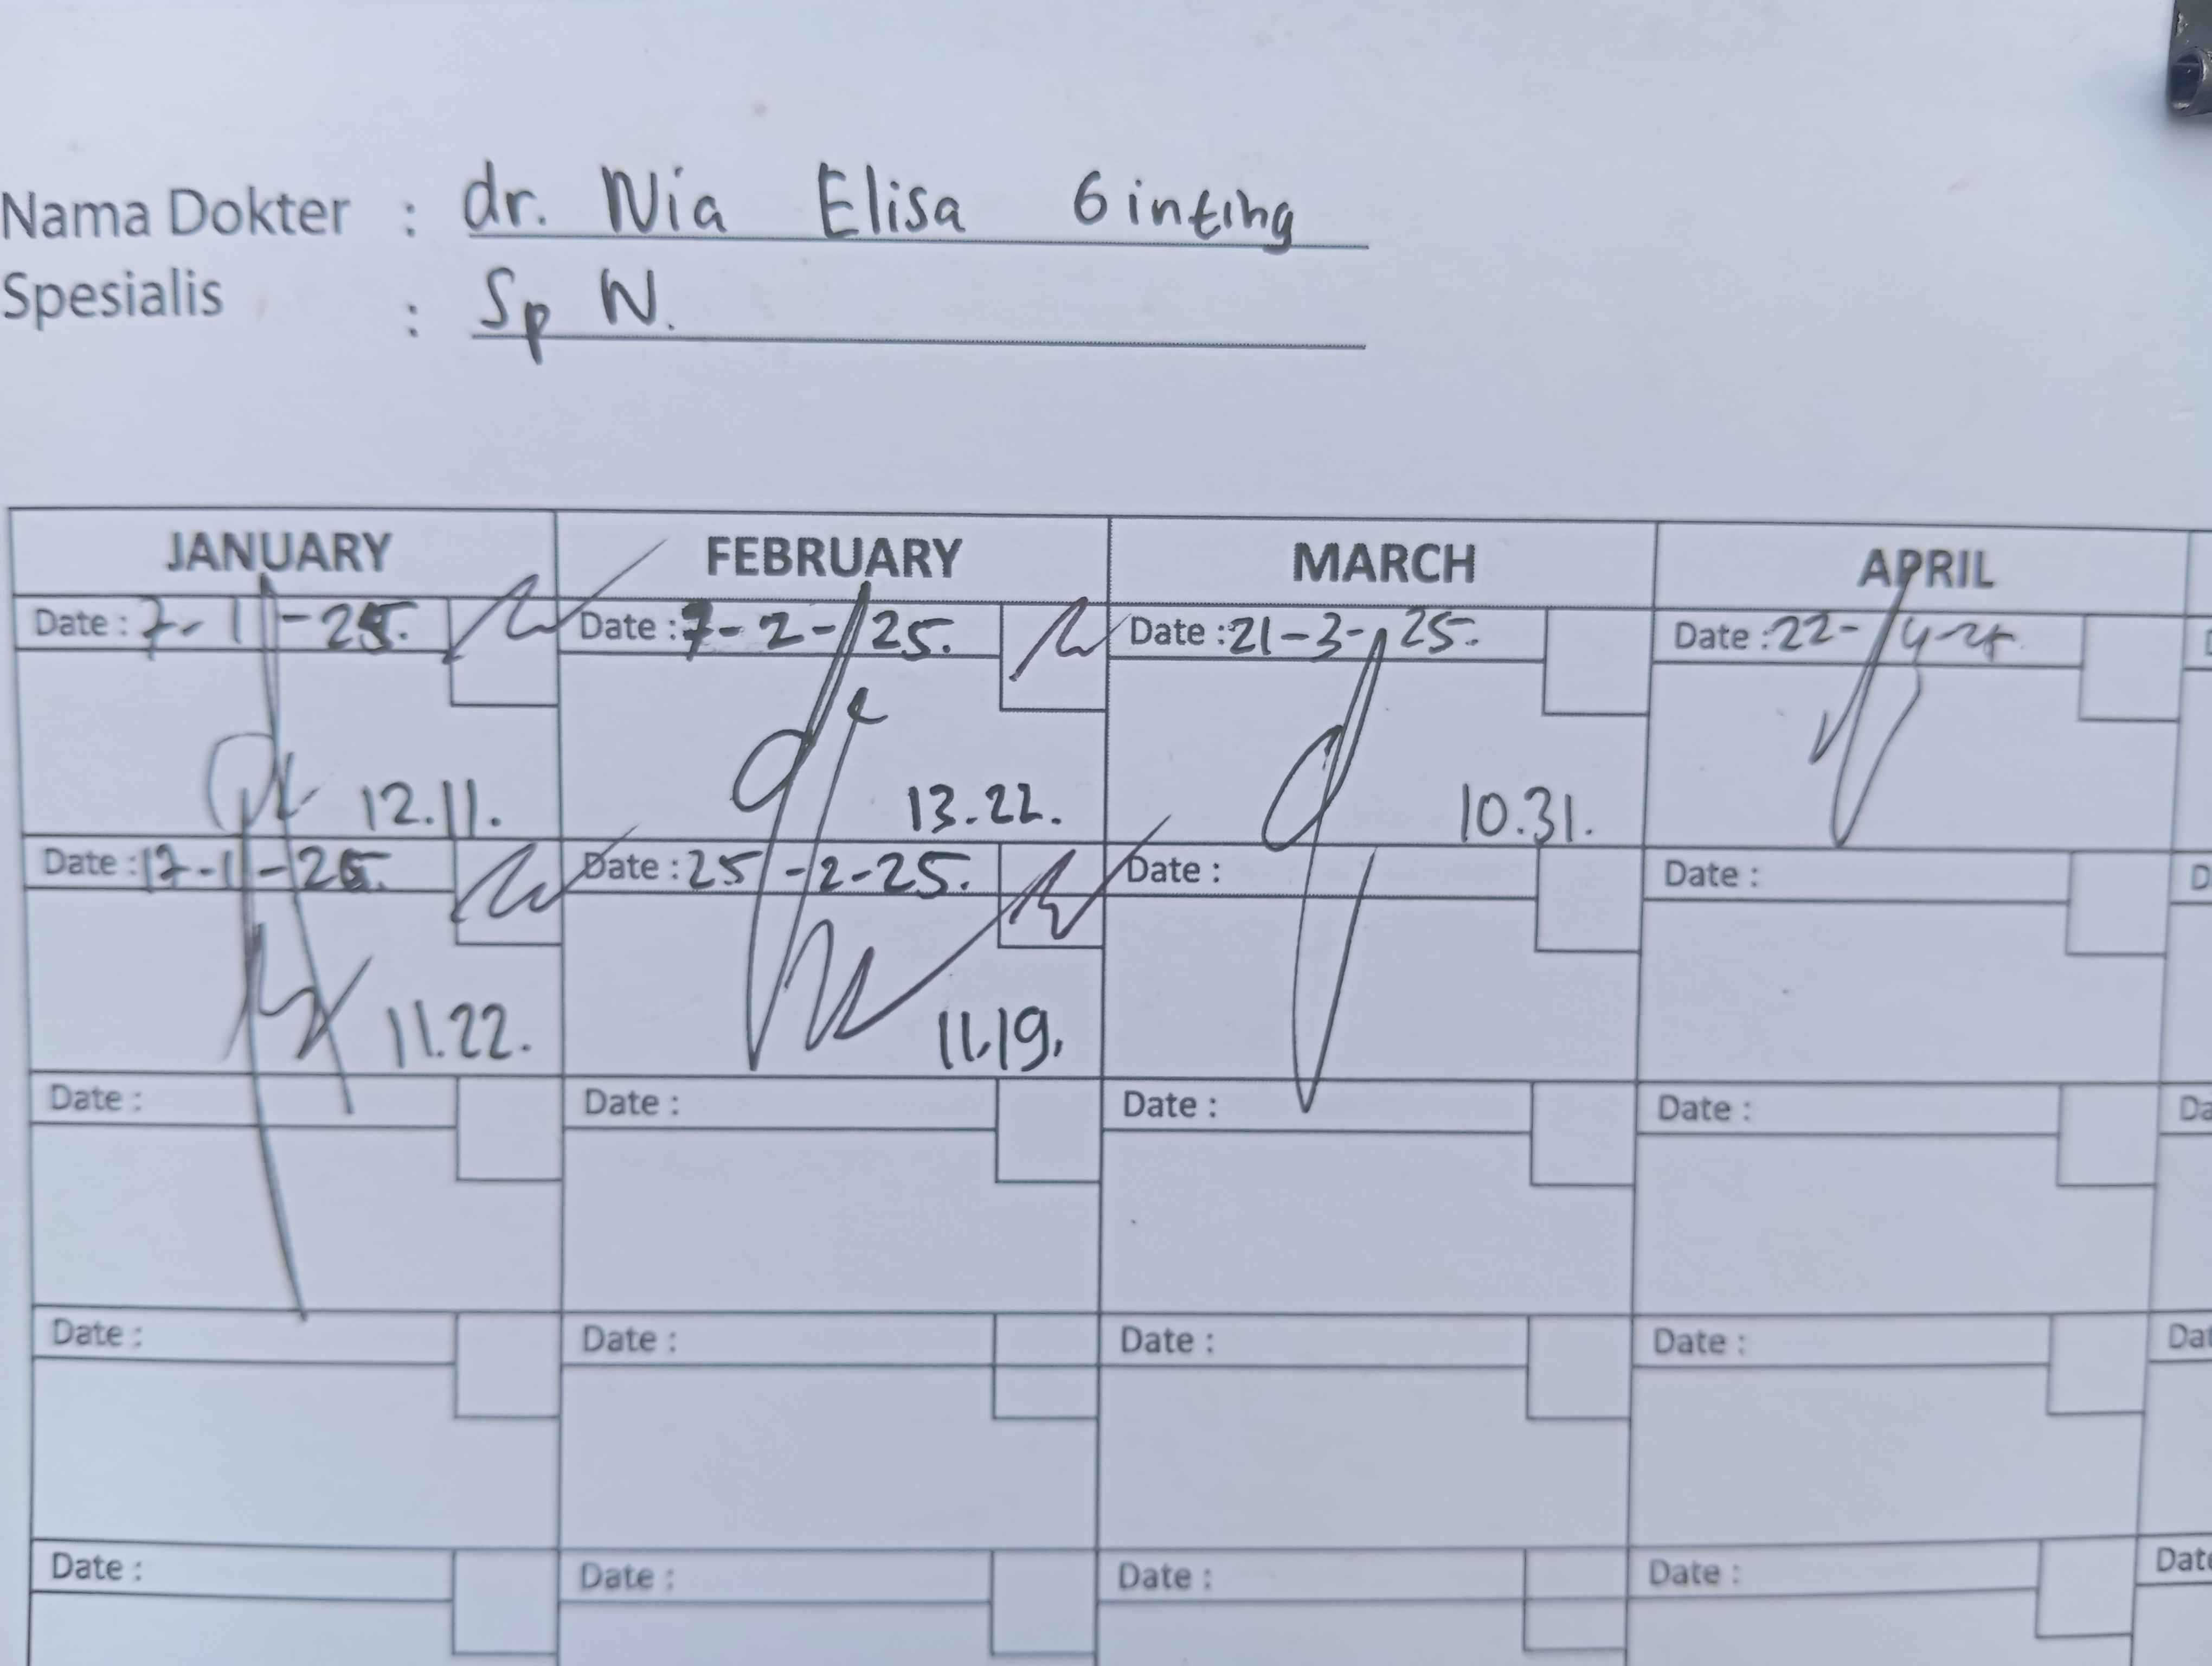 Nama Dokter : dr. Nia Elisa Ginting
Spesialis : Sp N.
JANUARY FEBRUARY MARCH APRIL
Date : 7-1-25. Date : 7-2-25. Date : 21-3-25. Date : 22-4-25
12.11. 13.22. 10.31.
Date : 17-1-25. Date : 25-2-25. Date : Date :
11.22. 11.19.
Date : Date : Date : Date :
Date : Date : Date : Date :
Date : Date : Date : Date :